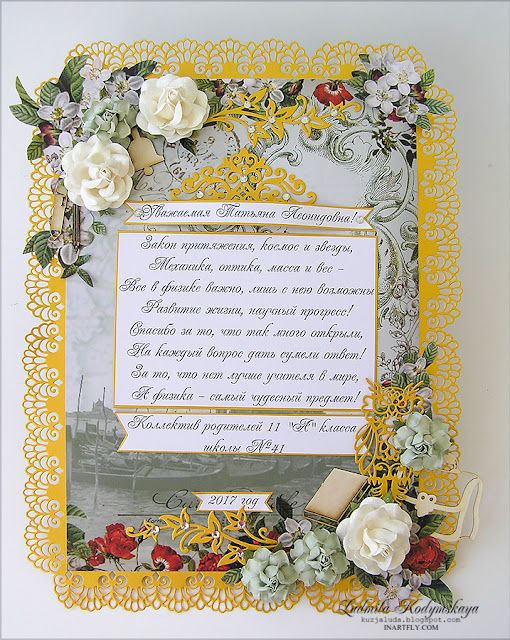 Уважаемая Татьяна Леонидовна!
Закон притяжения, космос и звезды,
Механика, оптика, масса и вес –
Все в физике важно, лишь с нею возможны
Развитие жизни, научный прогресс!
Спасибо за то, что так много открыли,
На каждый вопрос дать сумели ответ!
За то, что нет лучше учителя в мире,
А физика – самый чудесный предмет!
Коллектив родителей 11 "А" класса
школы №41
2017 год
Ludmila Kodymskaya
kurjaluda.blogspot.com
INARTFLY.COM